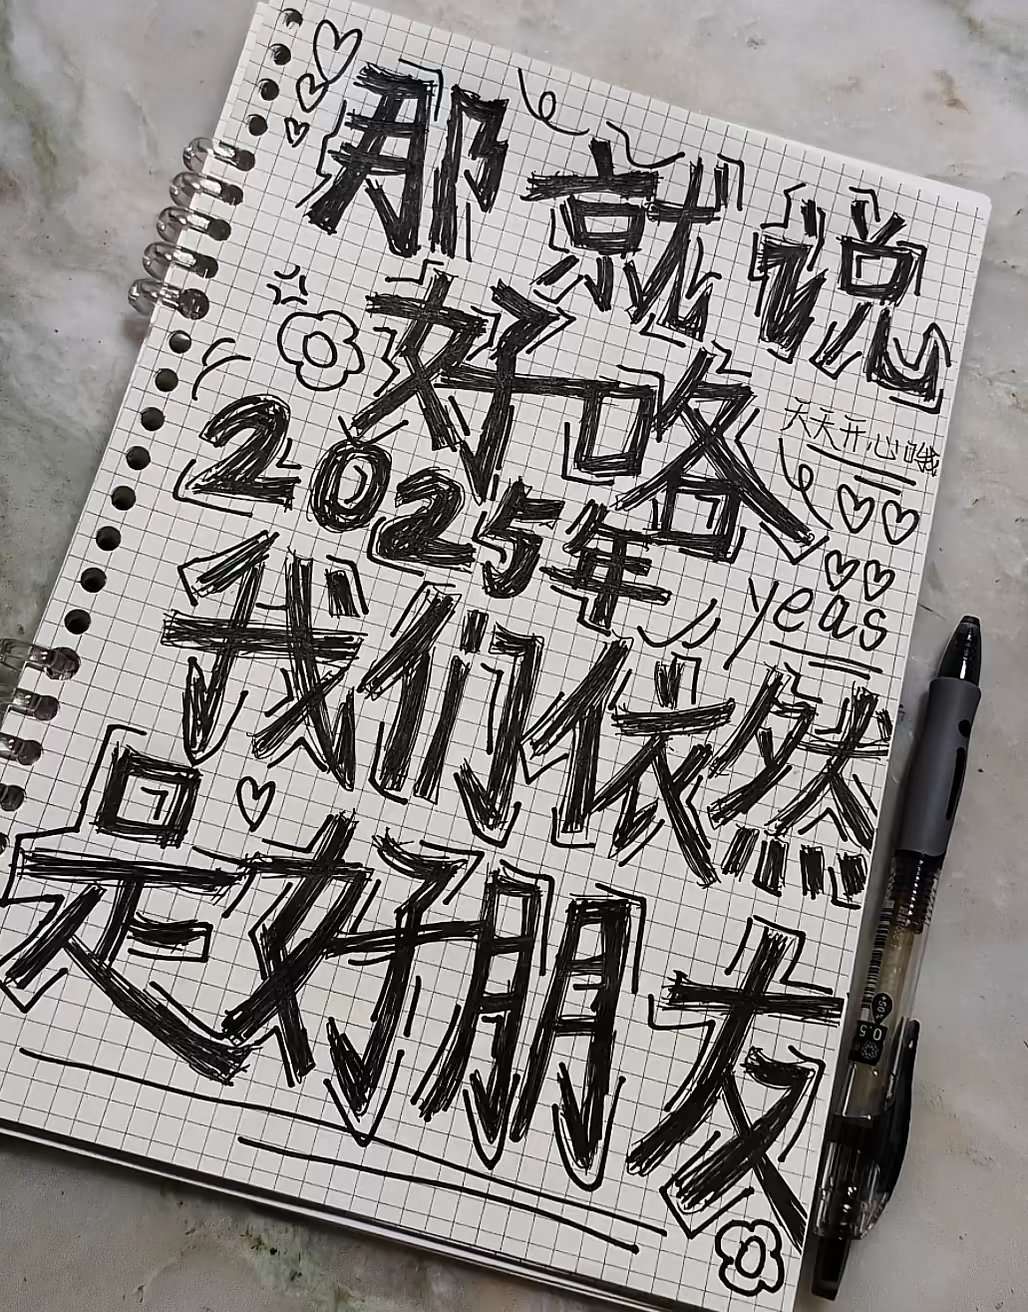 那就说
好咯
天天开心哦
2025年
yeas
我们依然
是好朋友
0.5